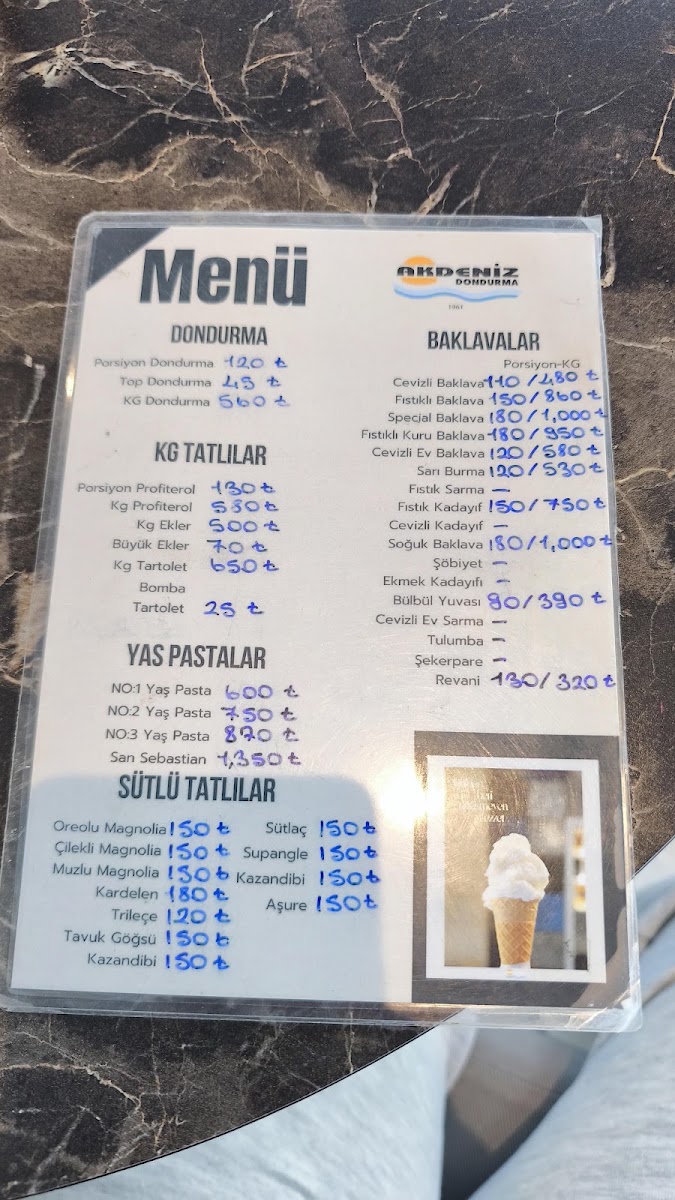 Menü
AKDENİZ
DONDURMA
1961
DONDURMA
Porsiyon Dondurma 120 ₺
Top Dondurma 45 ₺
KG Dondurma 560 ₺
KG TATLILAR
Porsiyon Profiterol 130 ₺
Kg Profiterol 580 ₺
Kg Ekler 500 ₺
Büyük Ekler 70 ₺
Kg Tartolet 650 ₺
Bomba
Tartolet 25 ₺
YAS PASTALAR
NO:1 Yaş Pasta 600 ₺
NO:2 Yaş Pasta 750 ₺
NO:3 Yaş Pasta 870 ₺
San Sebastian 1,350 ₺
SÜTLÜ TATLILAR
Oreolu Magnolia 150 ₺
Çilekli Magnolia 150 ₺
Muzlu Magnolia 150 ₺
Kardelen 180 ₺
Trileçe 120 ₺
Tavuk Göğsü 150 ₺
Kazandibi 150 ₺
Sütlaç 150 ₺
Supangle 150 ₺
Kazandibi 150 ₺
Aşure 150 ₺
BAKLAVALAR
Porsiyon-KG
Cevizli Baklava 110 / 480 ₺
Fıstıklı Baklava 150 / 860 ₺
Special Baklava 180 / 1,000 ₺
Fıstıklı Kuru Baklava 180 / 950 ₺
Cevizli Ev Baklava 120 / 580 ₺
Sarı Burma 120 / 530 ₺
Fıstık Sarma –
Fıstık Kadayıf 150 / 750 ₺
Cevizli Kadayıf –
Soğuk Baklava 180 / 1,000 ₺
Şöbiyet –
Ekmek Kadayıfı –
Bülbül Yuvası 90 / 390 ₺
Cevizli Ev Sarma –
Tulumba –
Şekerpare –
Revani 130 / 320 ₺